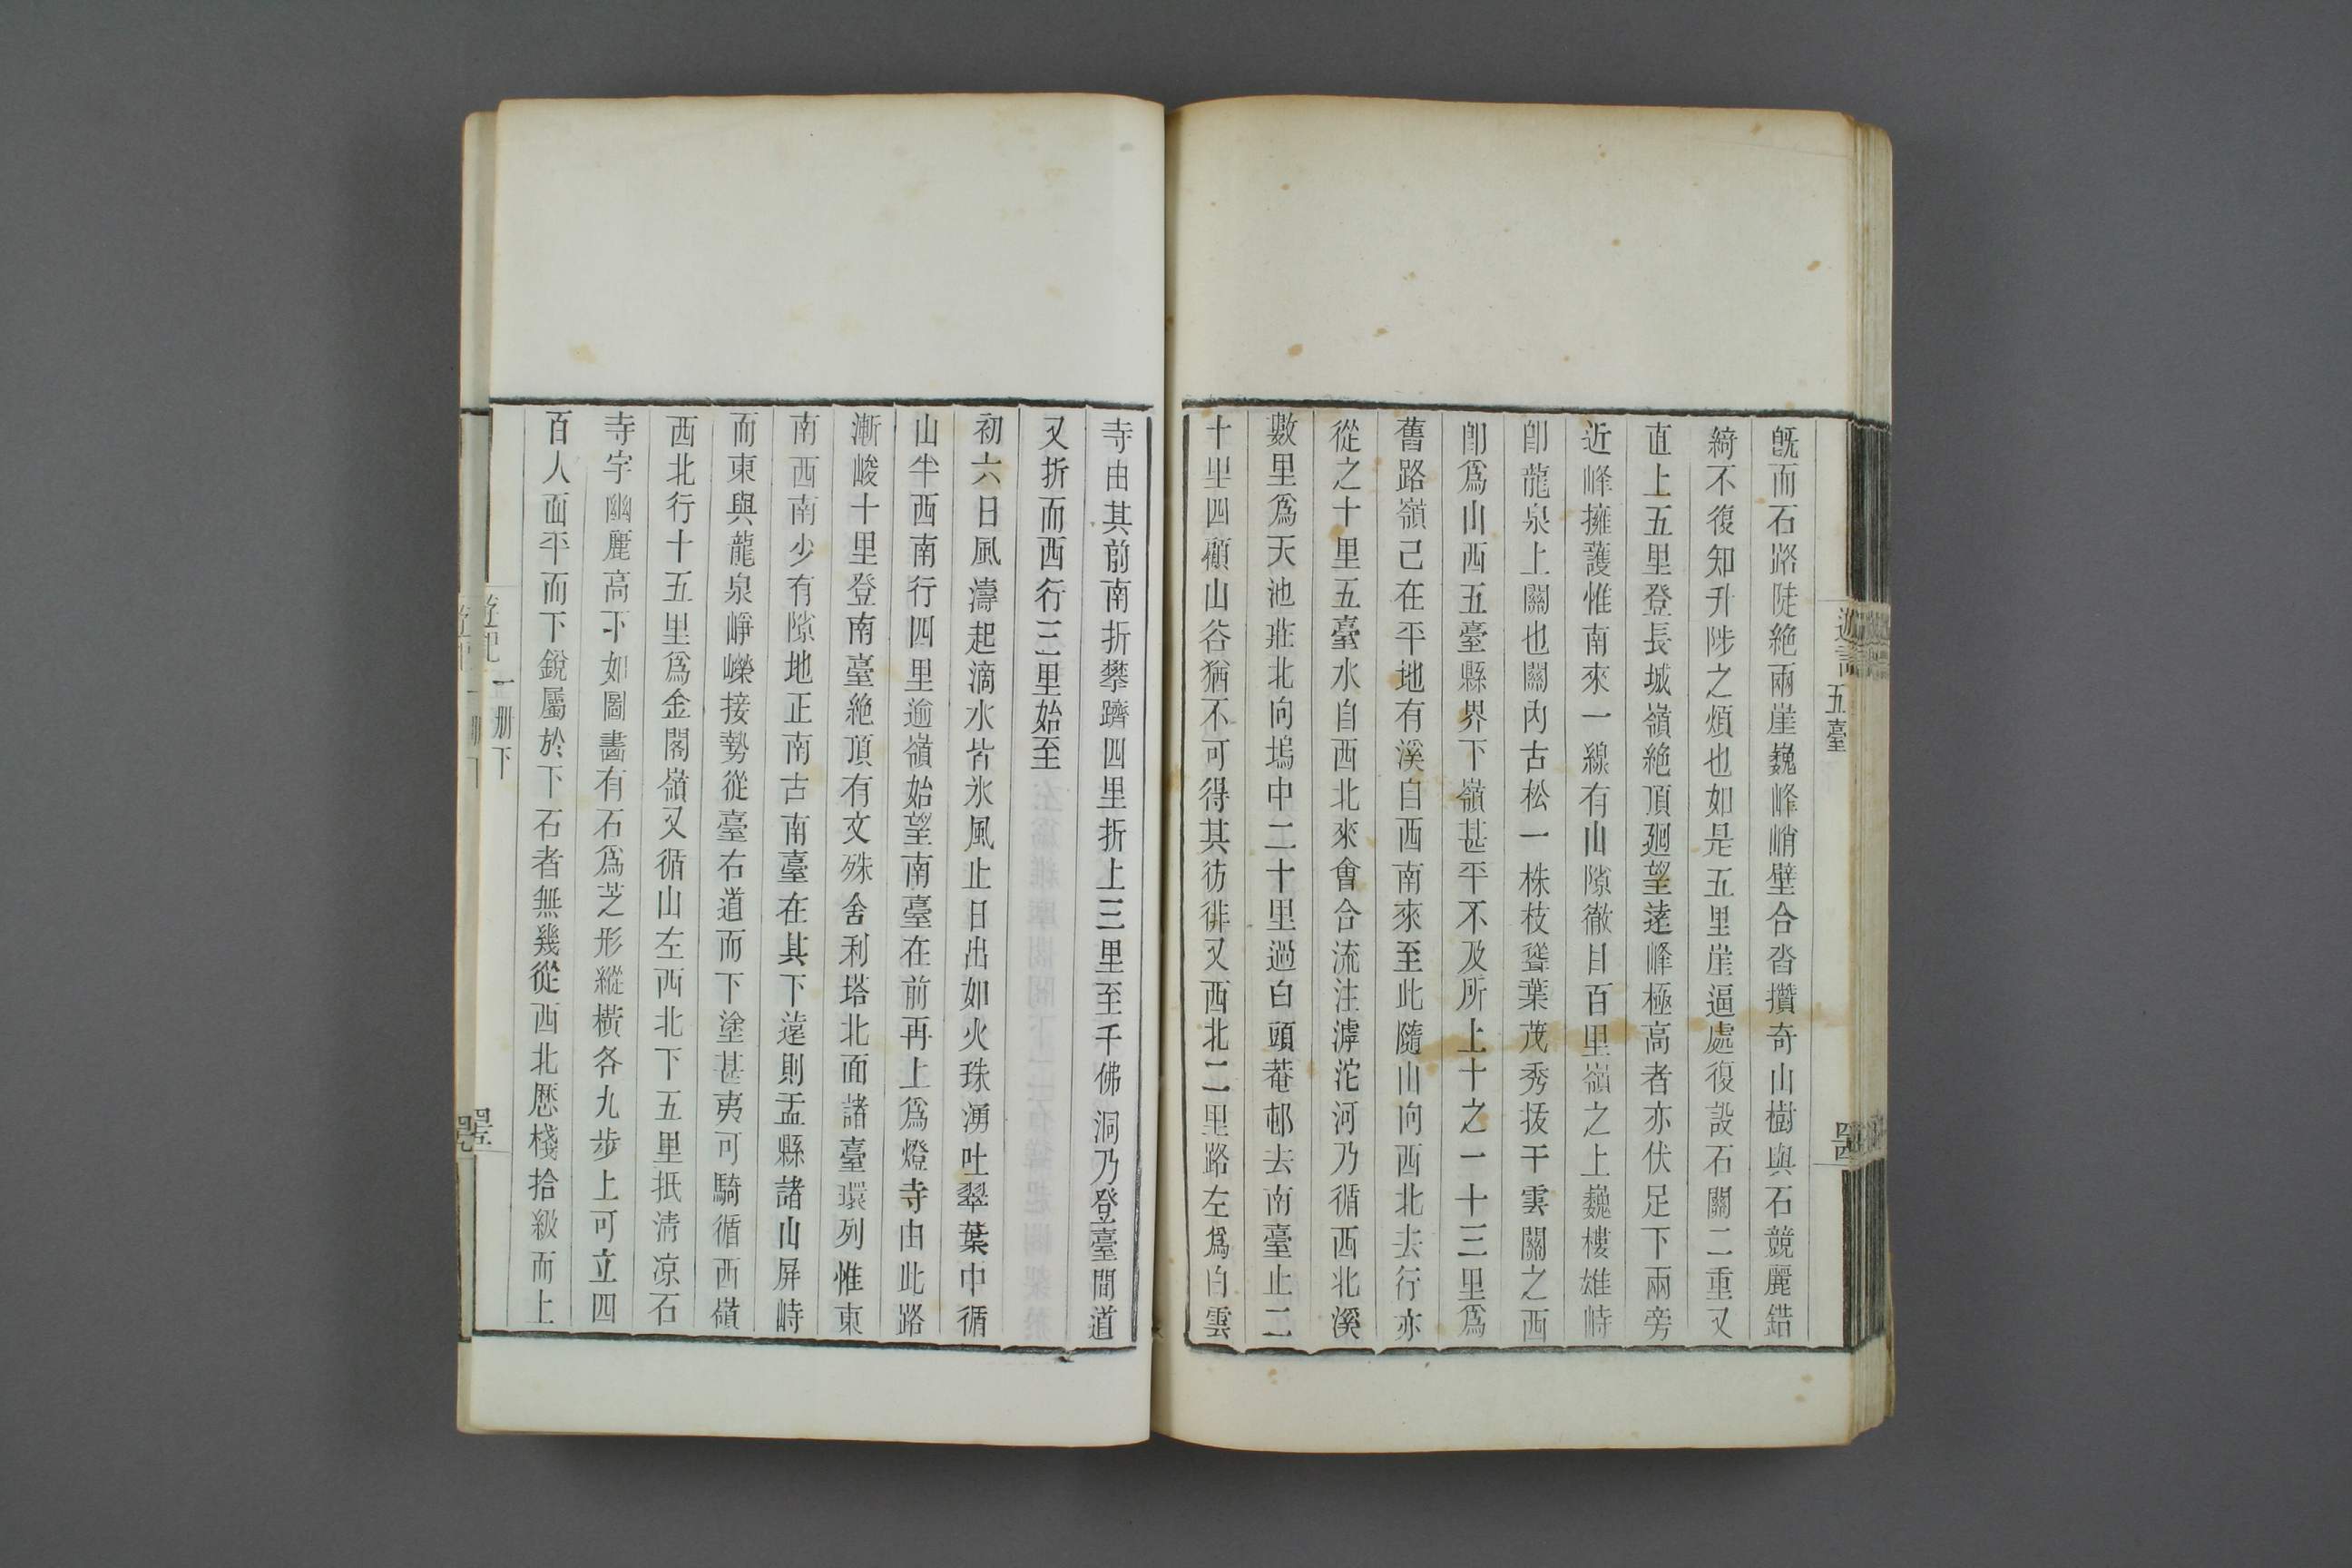 遊記 五臺
既而石路陡絶兩崖巍峰峭壁合沓攢奇山樹與石競麗錯
綺不復知升陟之煩也如是五里崖逼處復設石關二重又
直上五里登長城嶺絶頂廻望逺峰極高者亦伏足下兩旁
近峰擁護惟南來一線有山隙徹目百里嶺之上巍樓雄峙
卽龍泉上關也關内古松一株枝聳葉茂秀拔干雲關之西
卽爲山西五臺縣界下嶺甚平不及所上十之一十三里爲
舊路嶺己在平地有溪自西南來至此隨山向西北去行亦
從之十里五臺水自西北來會合流注滹沱河乃循西北溪
數里爲天池莊北向塢中二十里過白頭菴邨去南臺止二
十里四顧山谷猶不可得其彷徘又西北二里路左爲白雲
寺由其前南折攀躋四里折上三里至千佛洞乃登臺間道
又折而西行三里始至
初六日風濤起滴水皆氷風止日出如火珠湧吐翠葉中循
山半西南行四里逾嶺始望南臺在前再上爲燈寺由此路
漸峻十里登南臺絶頂有文殊舍利塔北面諸臺環列惟東
南西南少有隙地正南古南臺在其下遠則盂縣諸山屏峙
而東與龍泉崢嶸接勢從臺右道而下塗甚夷可騎循西嶺
西北行十五里爲金閣嶺又循山左西北下五里抵淸凉石
寺宇幽麗高下如圖畫有石爲芝形縱橫各九步上可立四
百人面平而下銳屬於下石者無幾從西北歷棧拾級而上
遊記 一册下